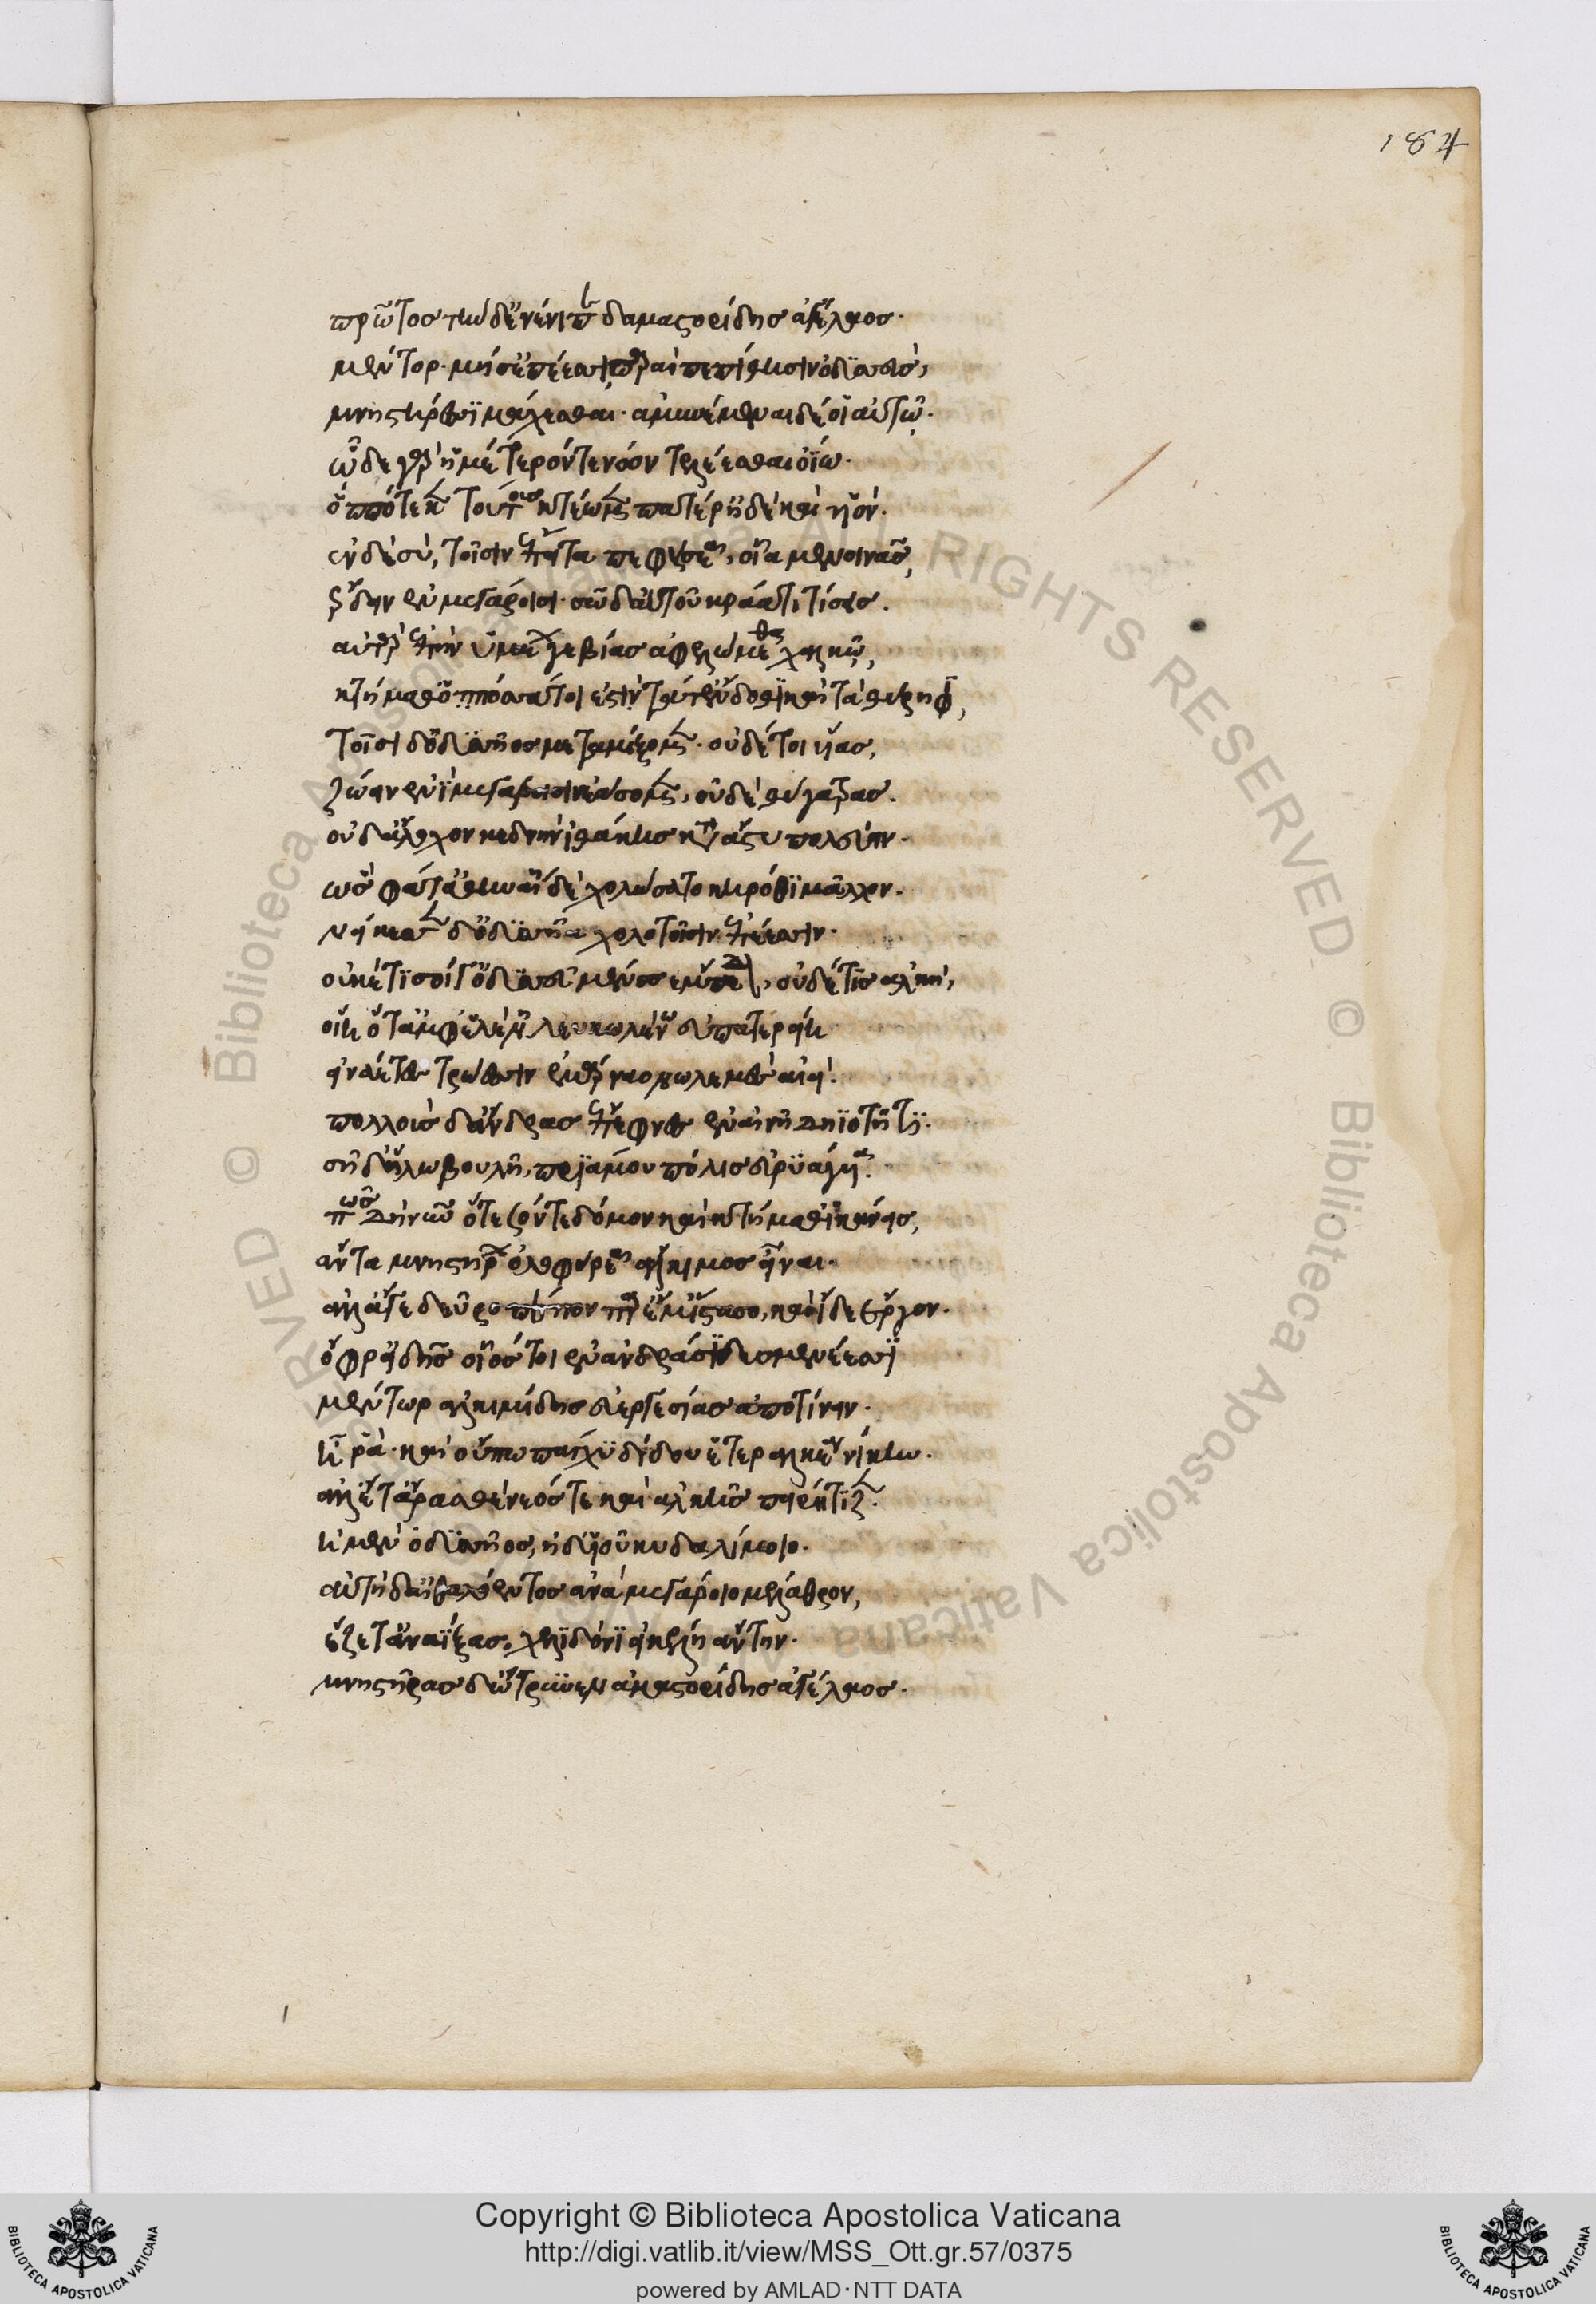 184
πρῶτος τὴν δ' ἐνένιπε δαμαστορίδης ἀγέλαος·
μέντορ· μή σ' ἐπέεσσι παραιπεπίθησιν ὀδυσσεύς,
μνηστήρεσσι μάχεσθαι· ἀμυνέμεναι δέ οἱ αὐτῷ·
ὧδε γὰρ ἡμέτερόν γε νόον τελέεσθαι ὀΐω·
ὁππότε κεν τούτους κτέωμεν πατέρ' ἠδὲ καὶ υἱόν·
ἐν δὲ σὺ, τοῖσιν ἔπειτα πεφήσεαι, οἷα μενοινᾷς,
ἔρδειν ἐν μεγάροισι· σῷ δ' αὐτοῦ κράατι τίσεις.
αὐτὰρ ἐπὴν ὑμέων γε βίας ἀφελώμεθα χαλκῷ,
κτήμαθ' ὁππόσα τοι ἐστὶν τά τ' ἔνδοθι καὶ τὰ θύρηφι,
τοῖσι δ' ὀδυσσῆος μεταμίξομεν· οὐδέ τοι υἷας,
ζώειν ἐν μεγάροισιν ἐάσομεν, οὐδὲ θύγατρας.
οὐδ' ἄλοχον κεδνὴν ἰθάκης κατὰ ἄστυ πολεύειν·
ὣς φάτ' ἀθηναίη δὲ χολώσατο κηρόθι μᾶλλον.
νείκεσσεν δ' ὀδυσσῆα χολωτοῖσιν ἐπέεσσιν·
οὐκέτι σοί γ' ὀδυσεῦ μένος ἔμπεδον, οὐδέ τις ἀλκή,
οἵη ὅτ' ἀμφ' ἑλένῃ λευκωλένῳ εὐπατερείῃ
εἰνάετες τρώεσσιν ἐμάρναο νωλεμὲς αἰεί·
πολλοὺς δ' ἄνδρας ἔπεφνες ἐν αἰνῇ δηϊοτῆτι·
σῇ δ' ἥλω βουλῇ, πριάμου πόλις εὐρυάγυια·
πῶς δὴ νῦν ὅτε σόν γε δόμον καὶ κτήμαθ' ἱκάνεις,
ἄντα μνηστήρων ὀλοφύρεαι ἄλκιμος εἶναι·
ἀλλ' ἄγε δεῦρο πέπον παρ' ἔμ' ἵστασο, καὶ ἴδε ἔργον·
ὄφρ' εἰδῇς οἷός τοι ἐν ἀνδράσι δυσμενέεσσι
μέντωρ ἀλκιμίδης εὐεργεσίας ἀποτίνειν·
ἦ ῥα· καὶ οὔπω πάγχυ δίδου ἑτεραλκέα νίκην·
ἀλλ' ἔτ' ἄρα σθένεός τε καὶ ἀλκῆς πειρήτιζεν·
ἠμὲν ὀδυσσῆος, ἠδ' υἱοῦ κυδαλίμοιο·
αὐτὴ δ' αἰθαλόεντος ἀνὰ μεγάροιο μέλαθρον,
ἕζετ' ἀναΐξασα, χελιδόνι εἰκέλη ἄντην·
μνηστῆρας δ' ὤτρυνε δαμαστορίδης ἀγέλαος·
RIGHTS RESERVED © Biblioteca Apostolica Vaticana
Copyright © Biblioteca Apostolica Vaticana
http://digi.vatlib.it/view/MSS_Ott.gr.57/0375
powered by AMLAD·NTT DATA
BIBLIOTECA APOSTOLICA VATICANA
BIBLIOTECA APOSTOLICA VATICANA